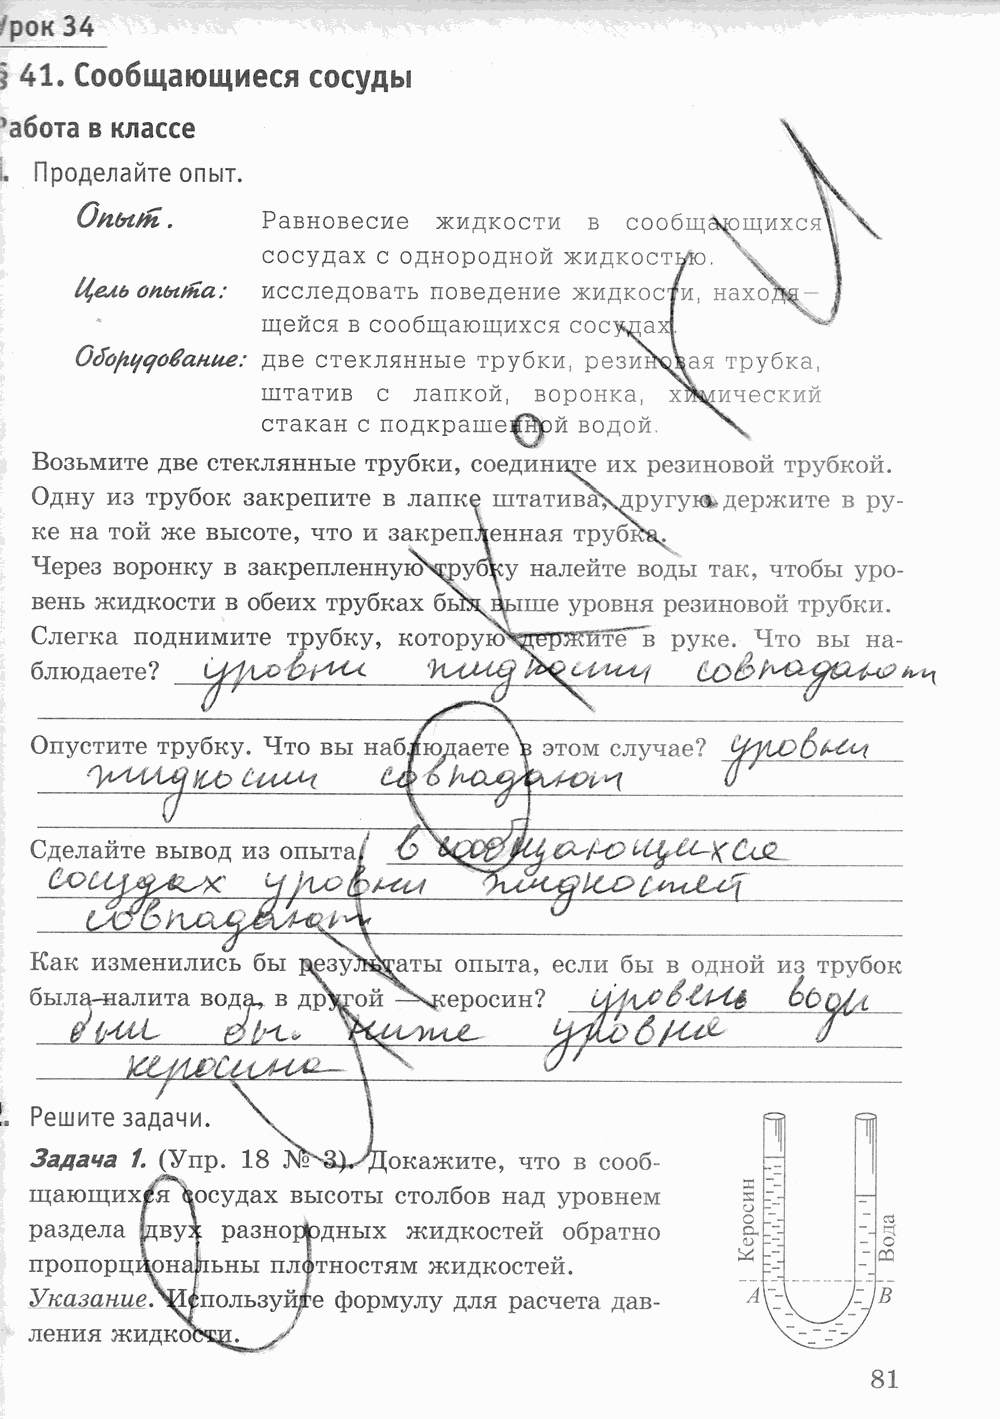 Урок 34
§ 41. Сообщающиеся сосуды
Работа в классе
1. Проделайте опыт.
Опыт. Равновесие жидкости в сообщающихся
сосудах с однородной жидкостью.
Цель опыта: исследовать поведение жидкости, находя–
щейся в сообщающихся сосудах.
Оборудование: две стеклянные трубки, резиновая трубка,
штатив с лапкой, воронка, химический
стакан с подкрашенной водой.
Возьмите две стеклянные трубки, соедините их резиновой трубкой.
Одну из трубок закрепите в лапке штатива, другую держите в ру-
ке на той же высоте, что и закрепленная трубка.
Через воронку в закрепленную трубку налейте воды так, чтобы уро-
вень жидкости в обеих трубках был выше уровня резиновой трубки.
Слегка поднимите трубку, которую держите в руке. Что вы на-
блюдаете? уровни жидкости совпадают
Опустите трубку. Что вы наблюдаете в этом случае? уровни
жидкости совпадают
Сделайте вывод из опыта. в сообщающихся
сосудах уровни жидкостей
совпадают
Как изменились бы результаты опыта, если бы в одной из трубок
была налита вода, в другой — керосин? уровень воды
был бы ниже уровня
керосина
2. Решите задачи.
Задача 1. (Упр. 18 № 3). Докажите, что в сооб-
щающихся сосудах высоты столбов над уровнем
раздела двух разнородных жидкостей обратно
пропорциональны плотностям жидкостей.
Указание. Используйте формулу для расчета дав-
ления жидкости.
Керосин
Вода
A B
81